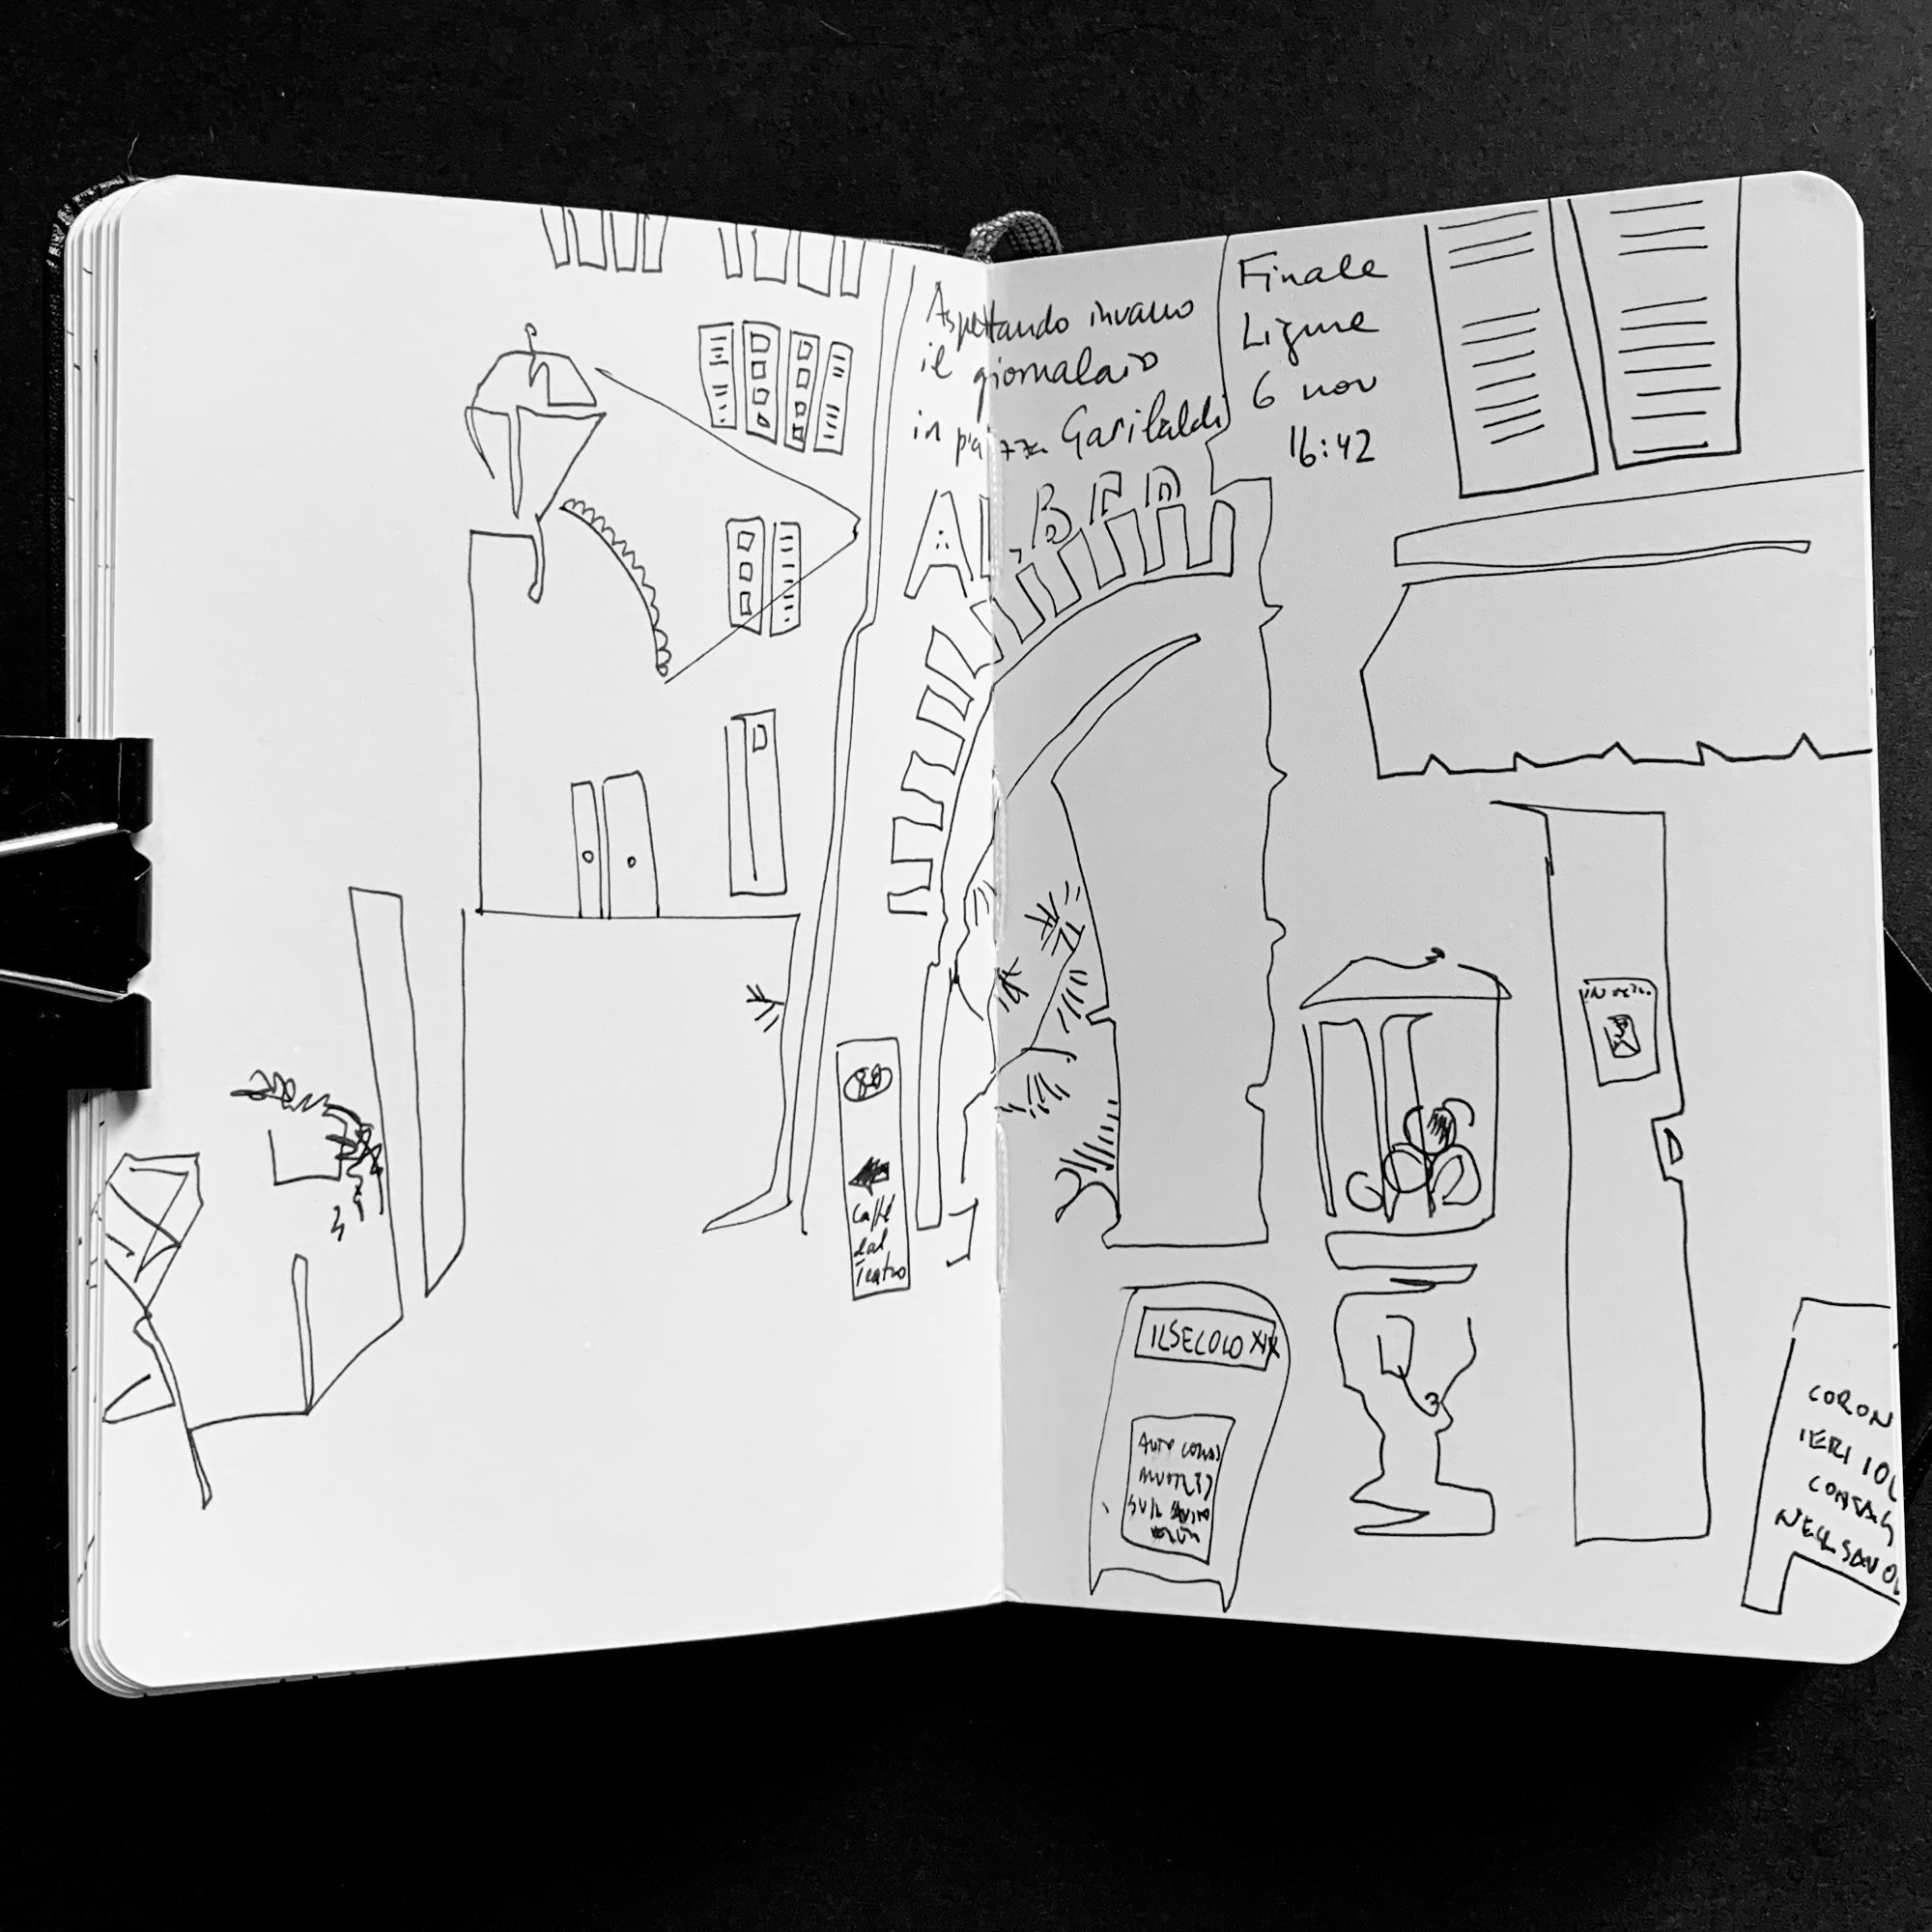 Aspettando invano
il giornalaio
in piazza Garibaldi
Finale
Ligure
6 nov
16:42
Caffè
dal
Teatro
IL SECOLO XIX
CORON
IERI 10
CONTAG
NEL SAVO